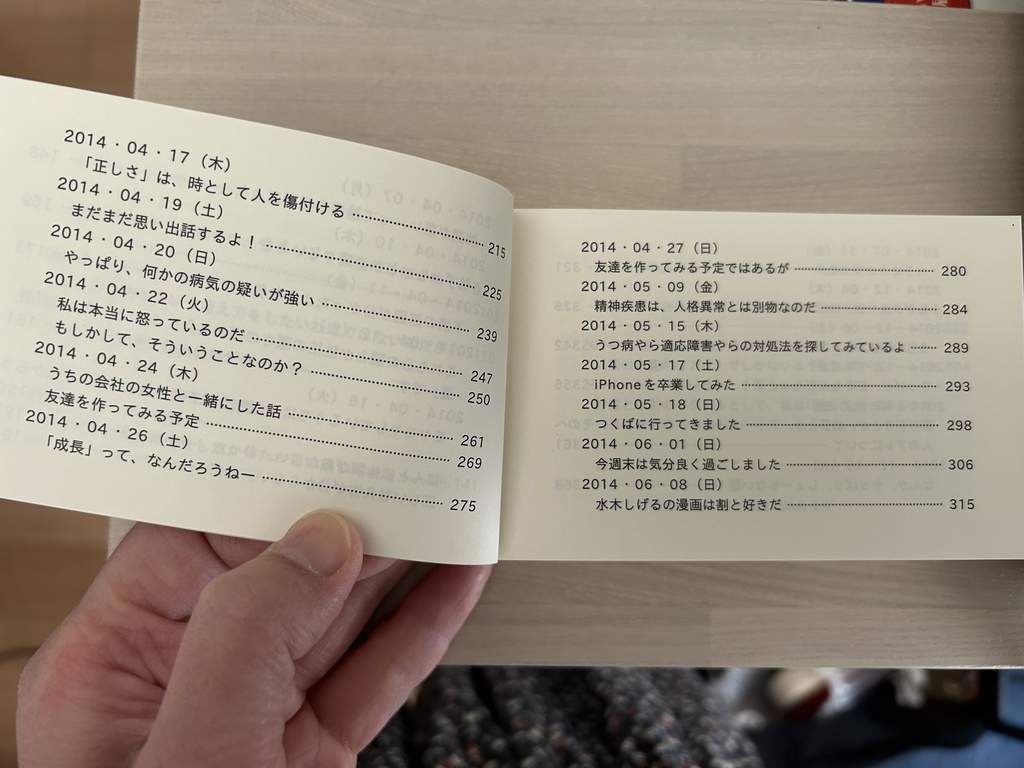 2014・04・17（木）
「正しさ」は、時として人を傷付ける ……………… 215
2014・04・19（土）
まだまだ思い出話するよ！ ……………… 225
2014・04・20（日）
やっぱり、何かの病気の疑いが強い ……………… 239
2014・04・22（火）
私は本当に怒っているのだ ……………… 247
もしかして、そういうことなのか？ ……………… 250
2014・04・24（木）
うちの会社の女性と一緒にした話 ……………… 261
友達を作ってみる予定 ……………… 269
2014・04・26（土）
「成長」って、なんだろうねー ……………… 275
2014・04・27（日）
友達を作ってみる予定ではあるが ……………… 280
2014・05・09（金）
精神疾患は、人格異常とは別物なのだ ……………… 284
2014・05・15（木）
うつ病やら適応障害やらの対処法を探してみているよ …… 289
2014・05・17（土）
iPhoneを卒業してみた ……………… 293
2014・05・18（日）
つくばに行ってきました ……………… 298
2014・06・01（日）
今週末は気分良く過ごしました ……………… 306
2014・06・08（日）
水木しげるの漫画は割と好きだ ……………… 315